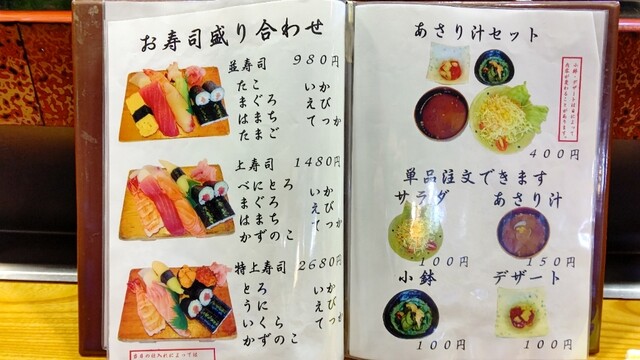 お寿司盛り合わせ
並寿司 980円
たこ いか
まぐろ えび
はまち てっか
たまご
上寿司 1480円
べにとろ いか
まぐろ えび
はまち てっか
かずのこ
特上寿司 2680円
とろ いか
うに えび
いくら てっか
かずのこ
あさり汁セット
小鉢・デザートは日によって
内容が変わることがあります。
400円
単品注文できます
サラダ あさり汁
100円 150円
小鉢 デザート
100円 100円